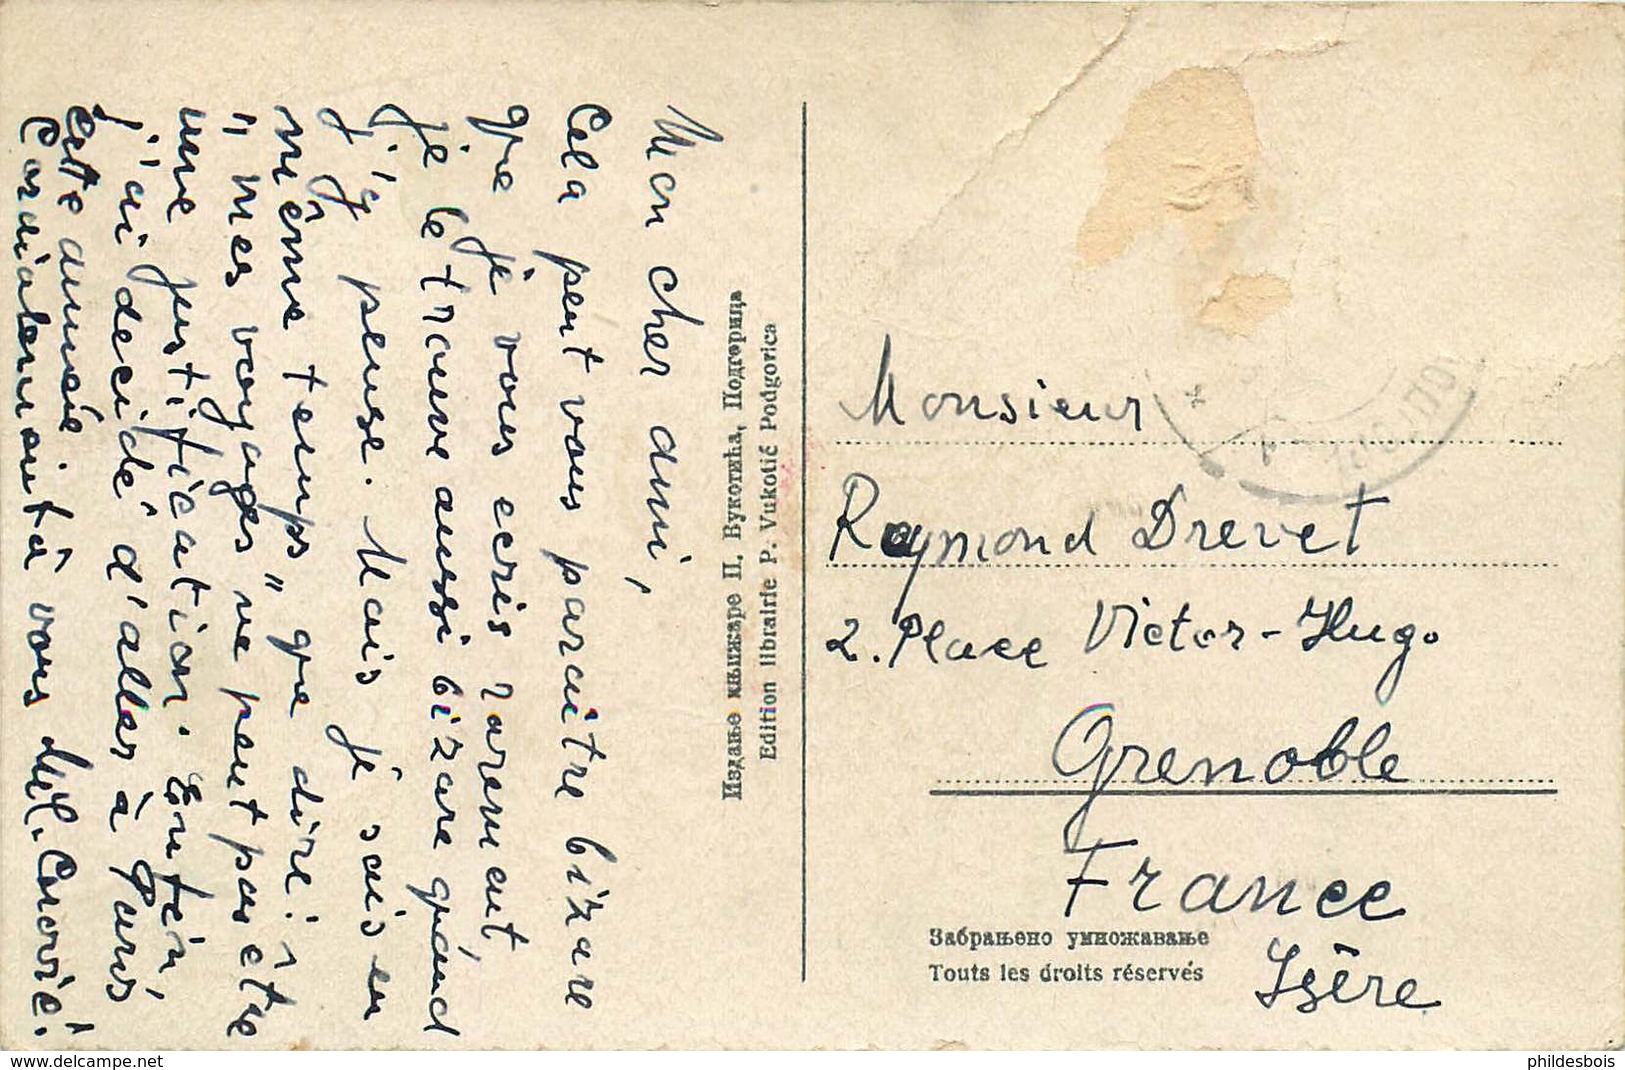 Mon cher ami,
Cela peut vous paraitre bizare
que je vous ecris rarement
je le trouve aussi bizare quand
j'y pense. Mais je sais en
même temps " que dire:
" mes voyages ne peut pas être
une justification.
j'ai decidé d'aller à Paris
cette année
Cordialement à vous Mil. Cerović.
Издање књижаре П. Вукотића, Подгорица
Edition librairie P. Vukotić Podgorica
Monsieur
Raymond Drevet
2. Place Victor-Hugo
Grenoble
France
Забрањено умножавање
Touts les droits réservés
Isère
www.delcampe.net
phildesbois